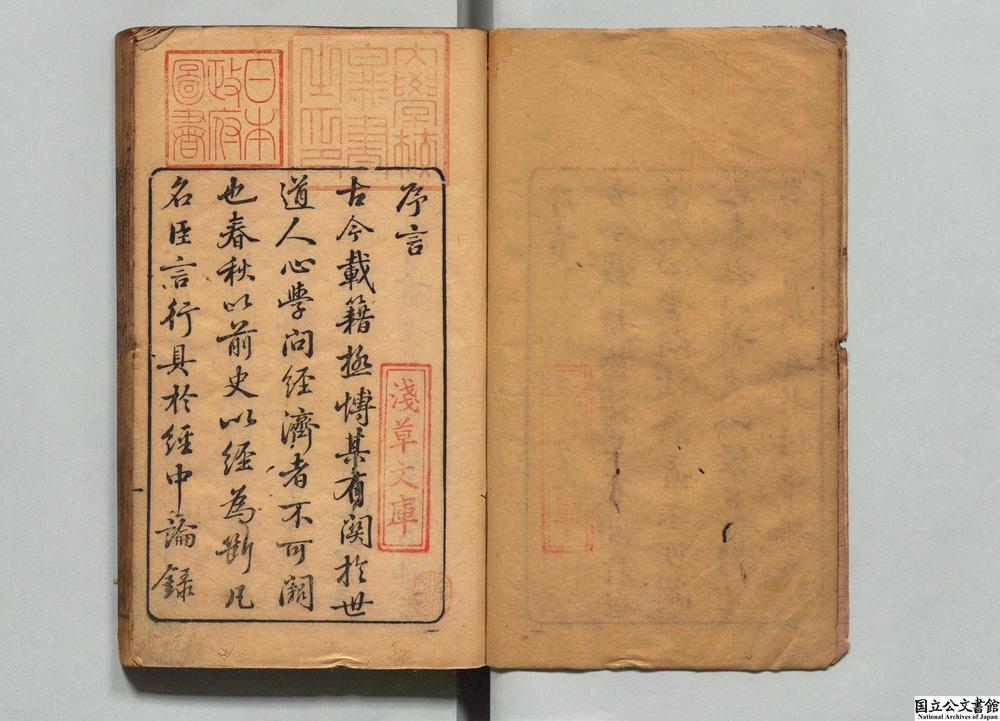 序言
古今載籍極博其有関於世
道人心學问経濟者不可闕
也春秋以前史以経為斷凡
名臣言行具於經中論録
日本
政府
圖書
淺草文庫
国立公文書館
National Archives of Japan